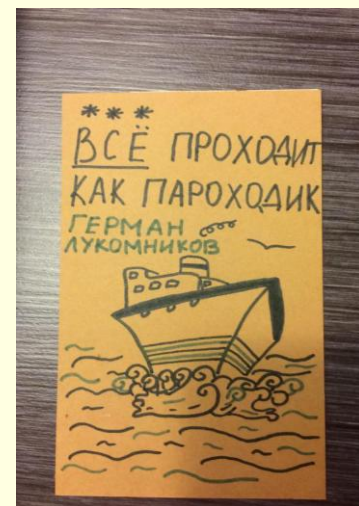 ***
ВСЁ ПРОХОДИТ
КАК ПАРОХОДИК
ГЕРМАН
ЛУКОМНИКОВ